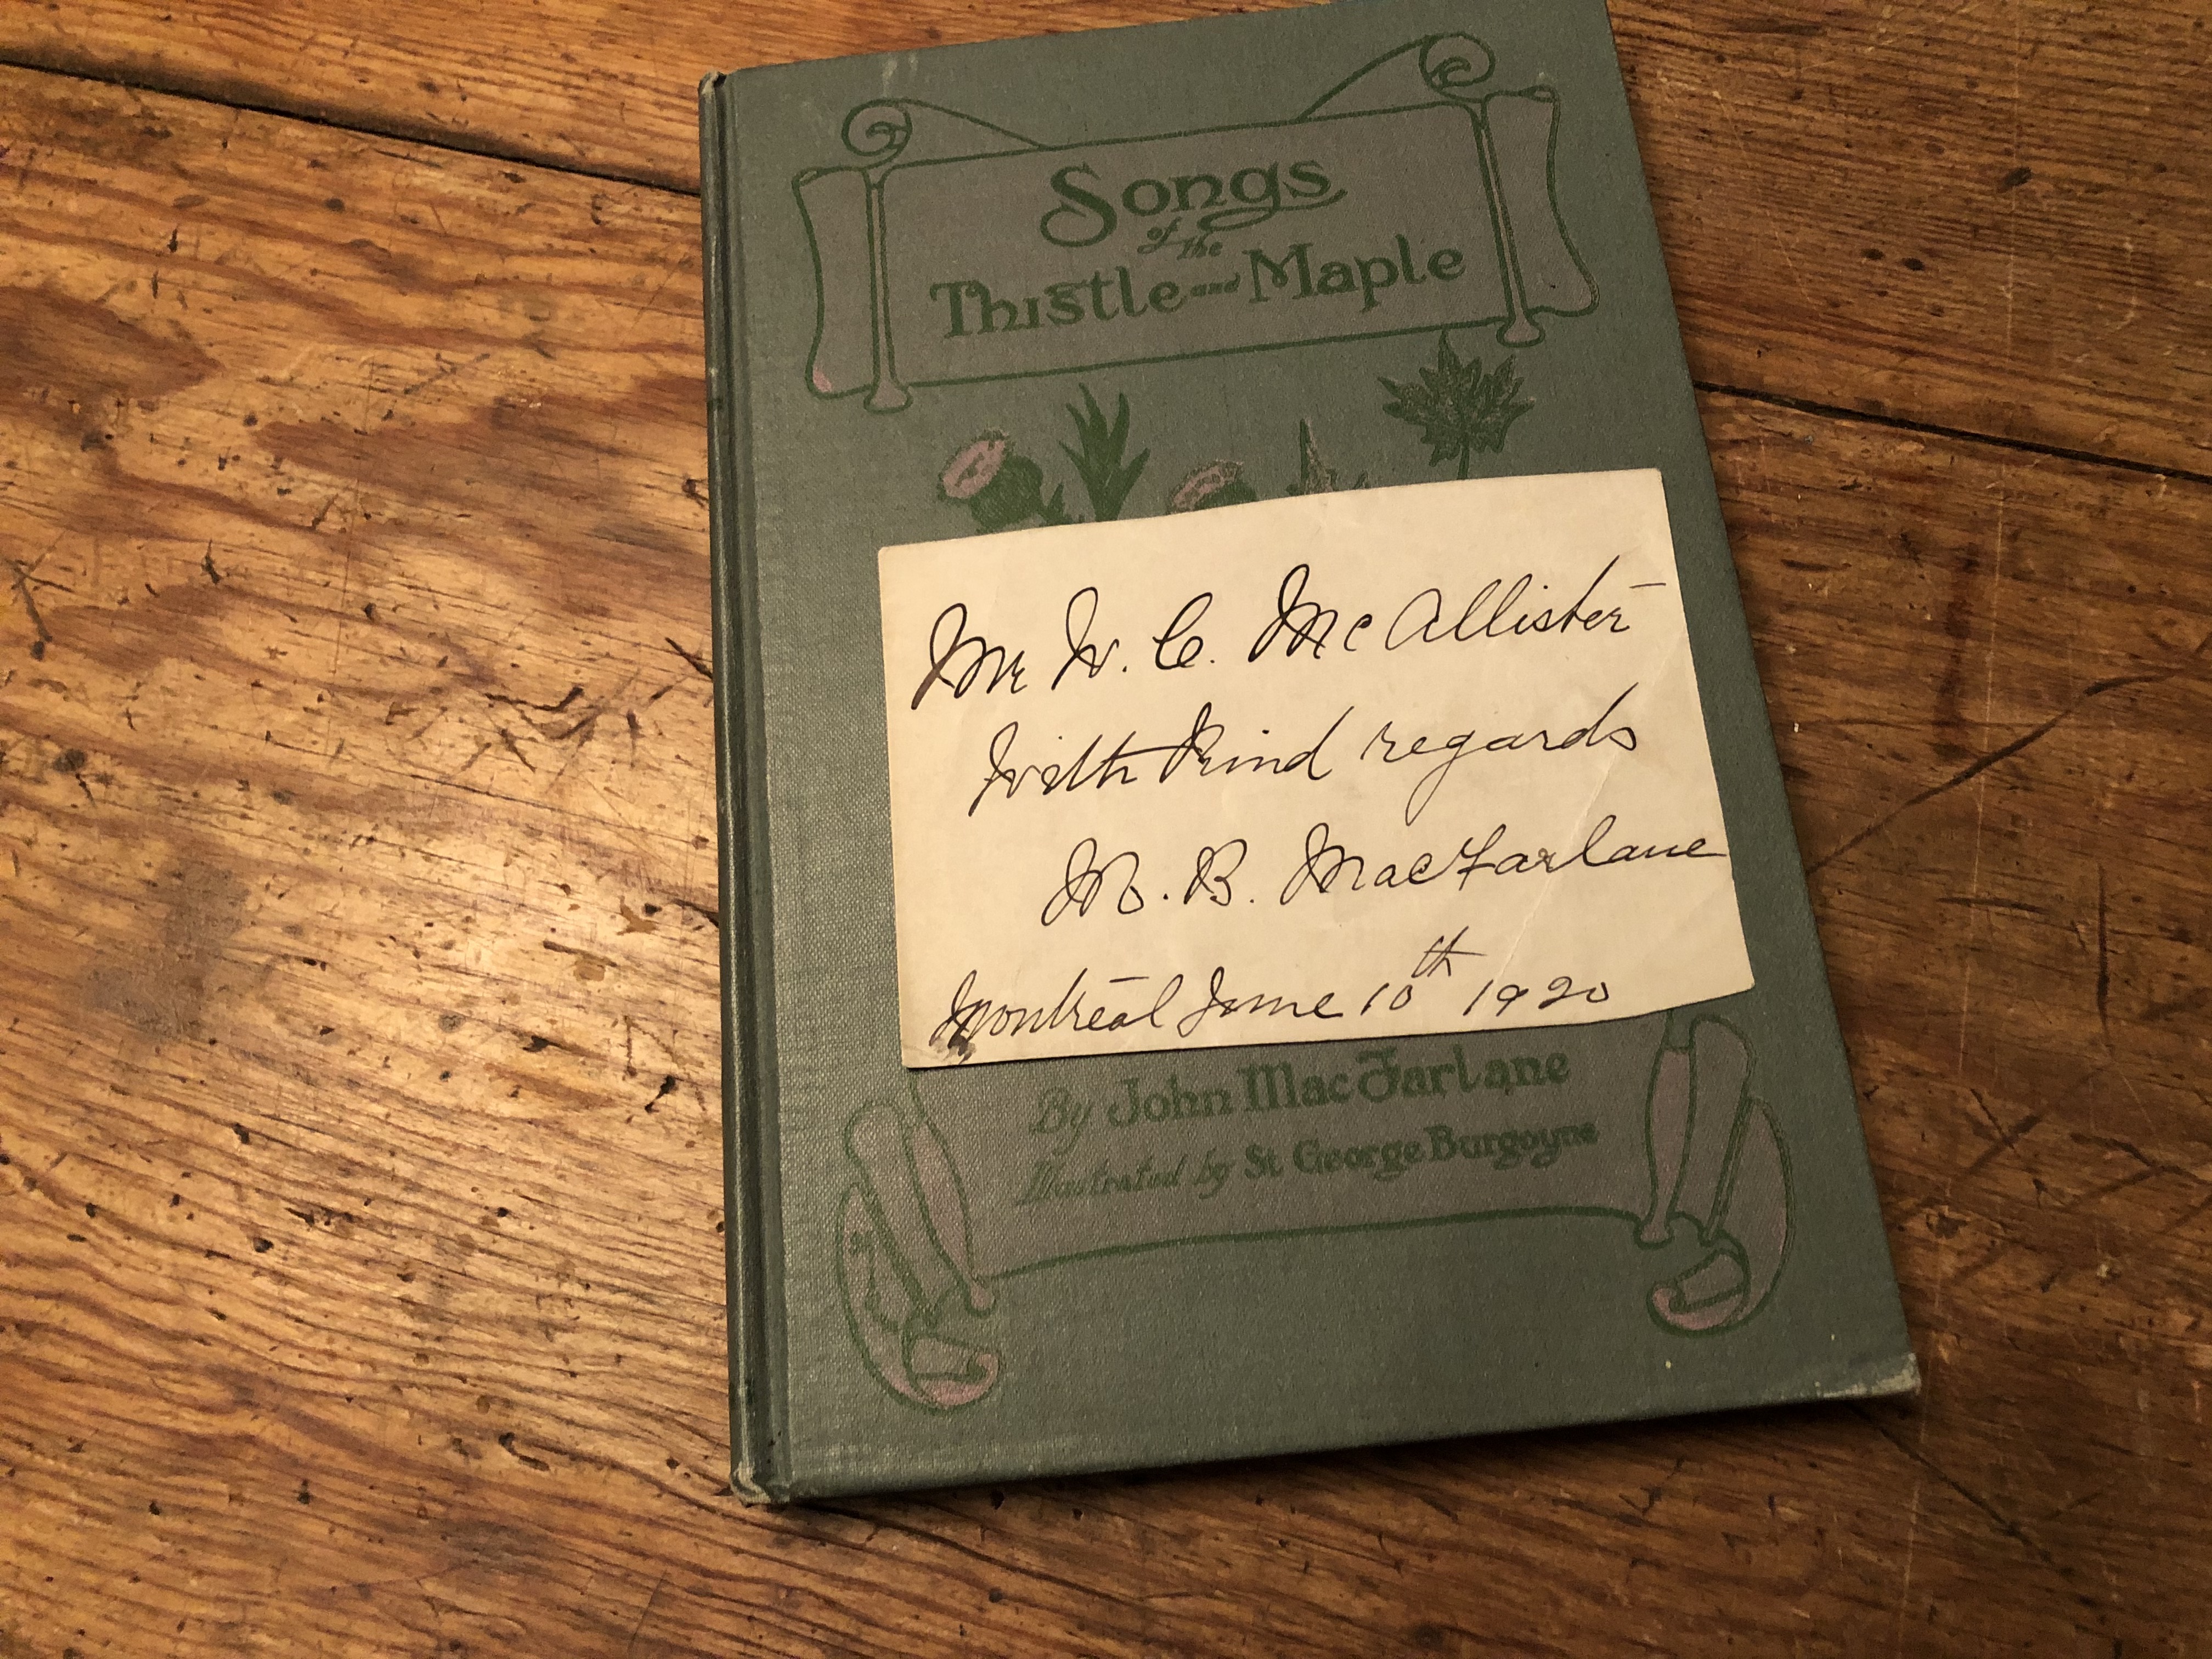 Songs
of the
Thistle and Maple
Mr W. C. McAllister
With Kind regards
M. B. MacFarlane
Montreal June 10th 1920
By John MacFarlane
Illustrated by St George Burgoyne